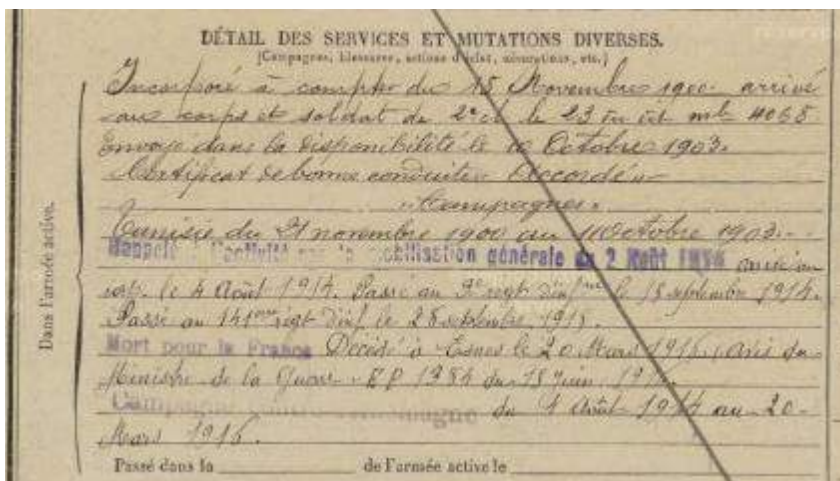 DÉTAIL DES SERVICES ET MUTATIONS DIVERSES.
(Campagnes, blessures, actions d'éclat, décorations, etc.)
Incorporé à compter du 15 Novembre 1900 arrivé
au corps et soldat de 2e cl. le 23 du dit mle 4065
Envoyé dans la disponibilité le 10 Octobre 1903.
Certificat de bonne conduite "Accordé"
"Campagnes"
Tunisie du 21 novembre 1900 au 11 Octobre 1903.
Rappelé à l'activité par la mobilisation générale du 2 Août 1914 arrivé au
corps le 4 Août 1914. Passé au 9e regt d'inf le 15 septembre 1914.
Passé au 141eme regt d'inf. le 28 septembre 1915.
Mort pour la France Décédé à Esnes le 20 Mars 1916, avis du
Ministre de la Guerre E P 1384 du 15 Juin
Campagne contre l'Allemagne du 4 Août 1914 au 20
Mars 1916.
Passé dans la de l'armée active le
Dans l'armée active.